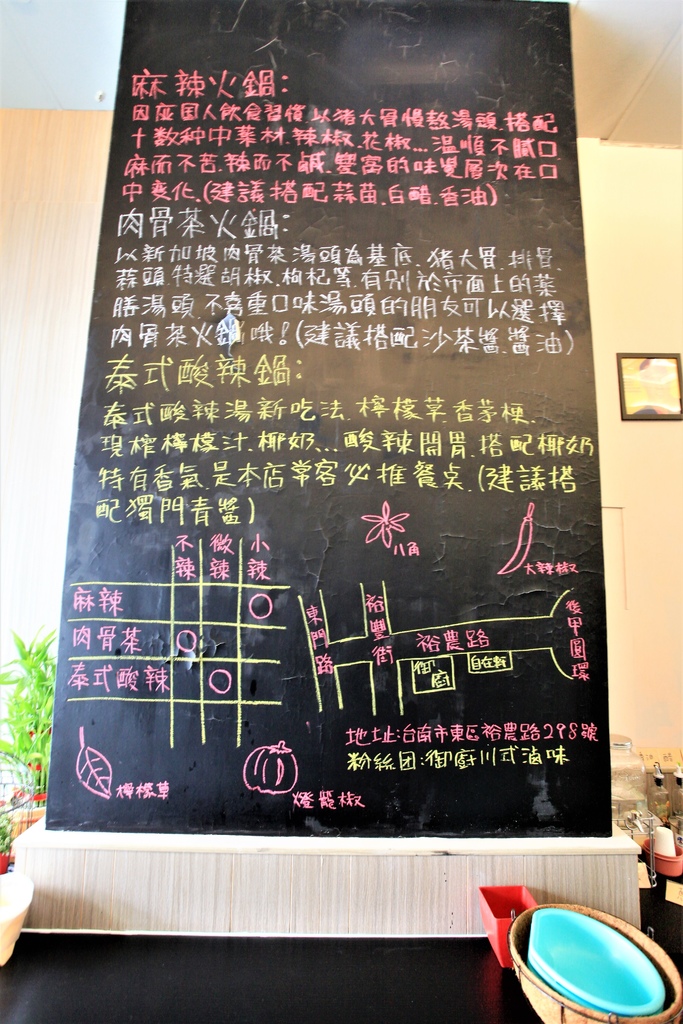 麻辣火鍋:
因應国人飲食習慣.以猪大骨慢熬湯頭.搭配
十数种中葉材.辣椒.花椒...温順不膩口.
麻而不苦.辣而不鹹.豐富的味覺層次在口
中变化.(建議搭配蒜苗.白醋.香油)
肉骨茶火鍋:
以新加坡肉骨茶湯頭為基底.猪大骨.排骨.
蒜頭.特選胡椒.枸杞等.有別於市面上的藥
膳湯頭.不喜重口味湯頭的朋友可以選擇
肉骨茶火鍋哦!(建議搭配沙茶醬.醬油)
泰式酸辣鍋:
泰式酸辣湯新吃法.檸檬草.香茅梗.
現榨檸檬汁.椰奶...酸辣開胃.搭配椰奶
特有香氣.是本店常客必推餐点.(建議搭
配獨門青醬)
八角
大辣椒
不辣 微辣 小辣
麻辣
肉骨茶
泰式酸辣
東門路
裕豐街
裕農路
後甲圓環
御廚
自在軒
地址:台南市東區裕農路298號
粉絲团:御廚川式滷味
檸檬草
燈籠椒